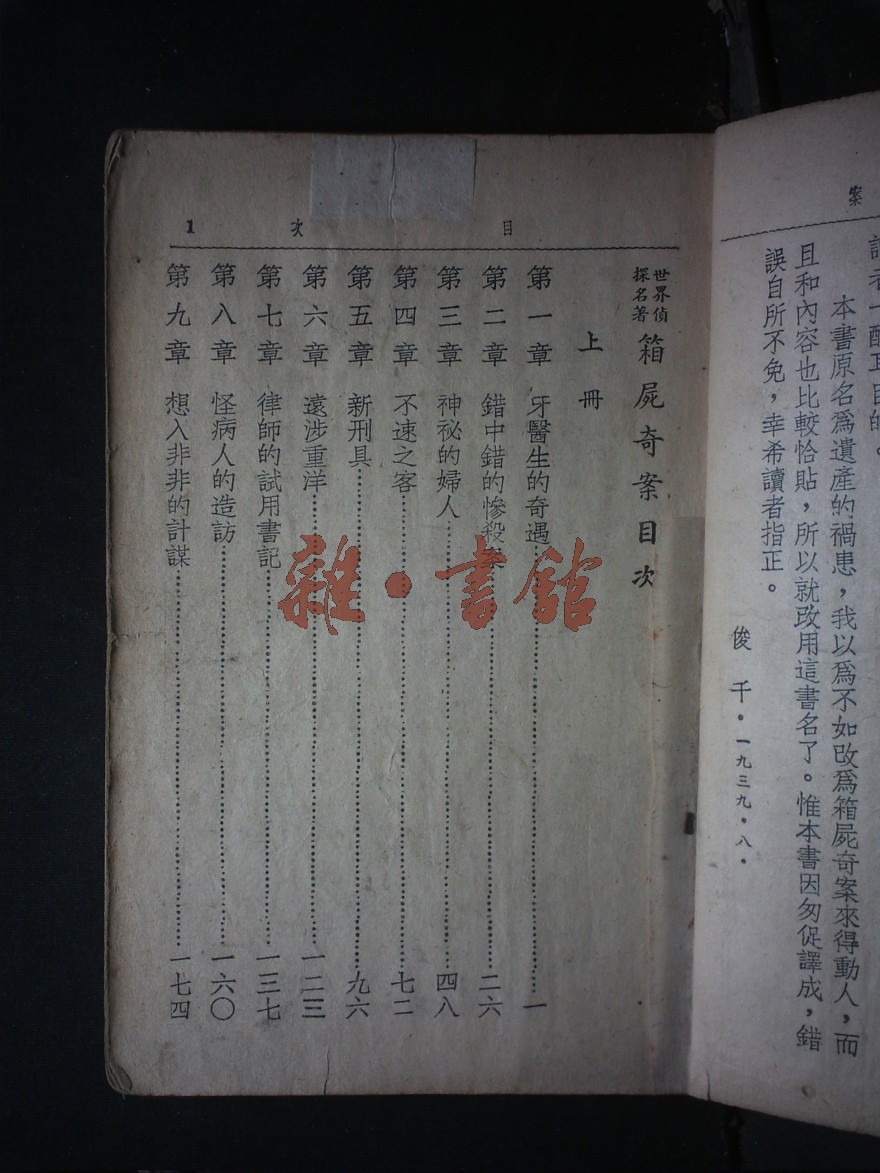 案
目的。
本書原名爲遺產的禍患，我以爲不如改爲箱屍奇案來得動人，而
且和內容也比較恰貼，所以就改用這書名了。惟本書因匆促譯成，錯
誤自所不免，幸希讀者指正。
俊千・一九三九・八・
目次 1
世界偵探名著 箱屍奇案目次
上冊
第一章 牙醫生的奇遇……一
第二章 錯中錯的慘殺案……二六
第三章 神祕的婦人……四八
第四章 不速之客……七二
第五章 新刑具……九六
第六章 遠涉重洋……一二三
第七章 律師的試用書記……一三七
第八章 怪病人的造訪……一六〇
第九章 想入非非的計謀……一七四
雜・書館